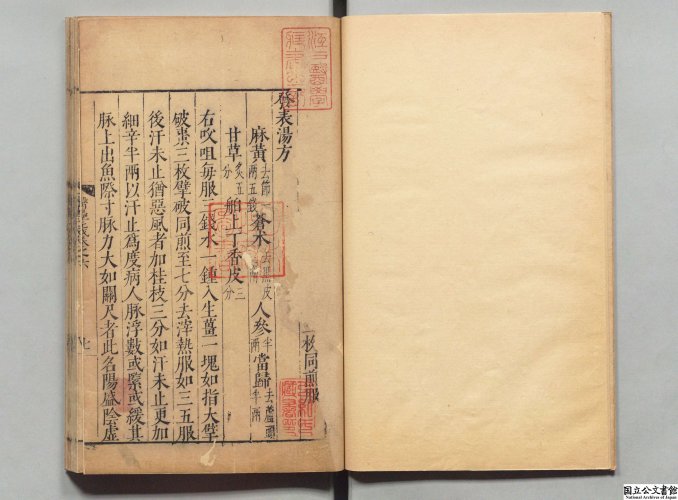 二枚同煎服
發表湯方
麻黃去節一兩五錢 蒼朮去黑皮 人參半兩 當歸去蘆頭半兩
甘草炙五分 舶上丁香皮三分
右㕮咀每服三錢水一鍾入生薑一塊如指大擘
破棗三枚擘破同煎至七分去滓熱服如三五服
後汗未止猶惡風者加桂枝三分如汗未止更加
細辛半兩以汗止為度病人脉浮數或緊或緩其
脉上出魚際寸脉力大如關尺者此名陽盛陰虛
江戶醫學
國立公文書館
National Archives of Japan